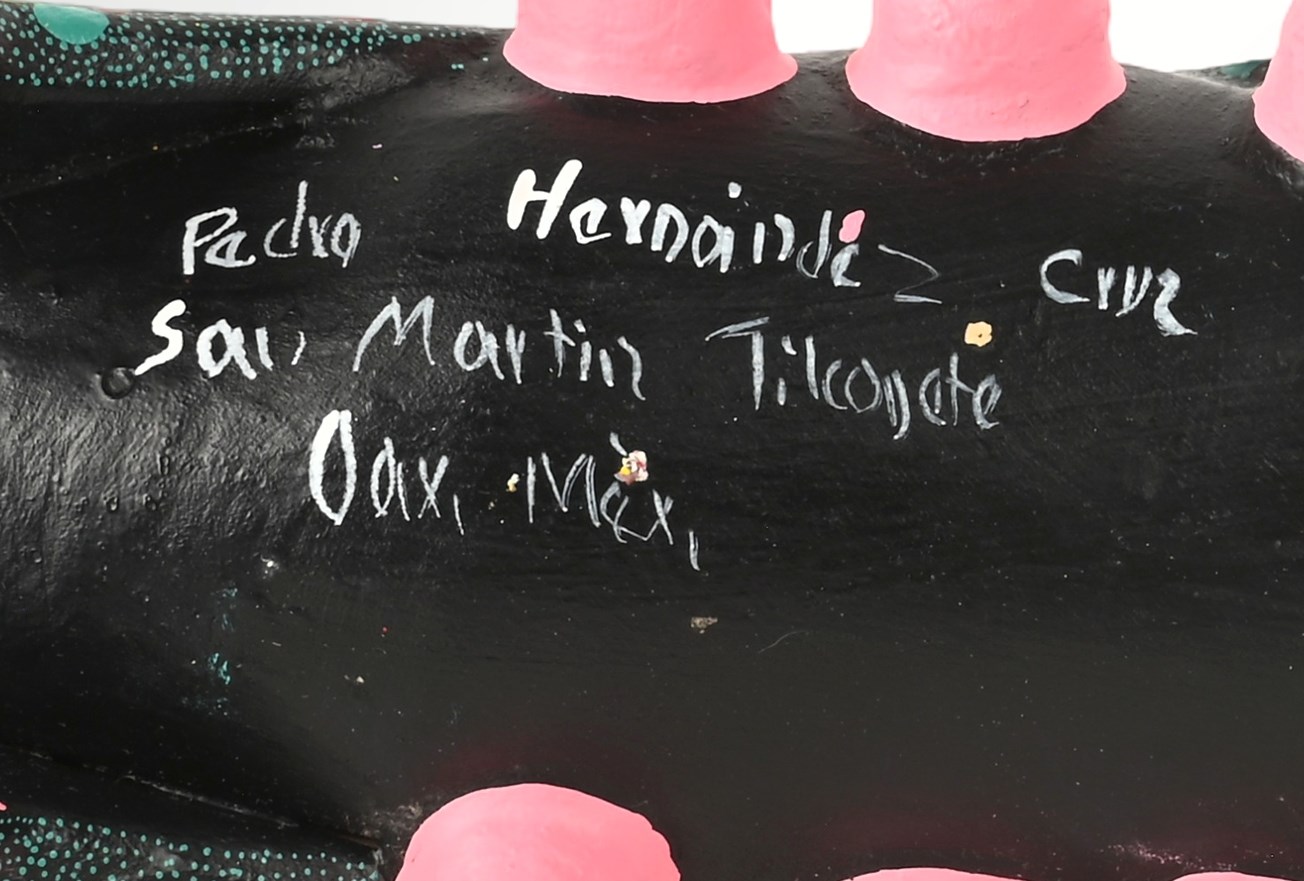 Pedro Hernández Cruz
San Martin Tilcoyete
Oax, Méx,